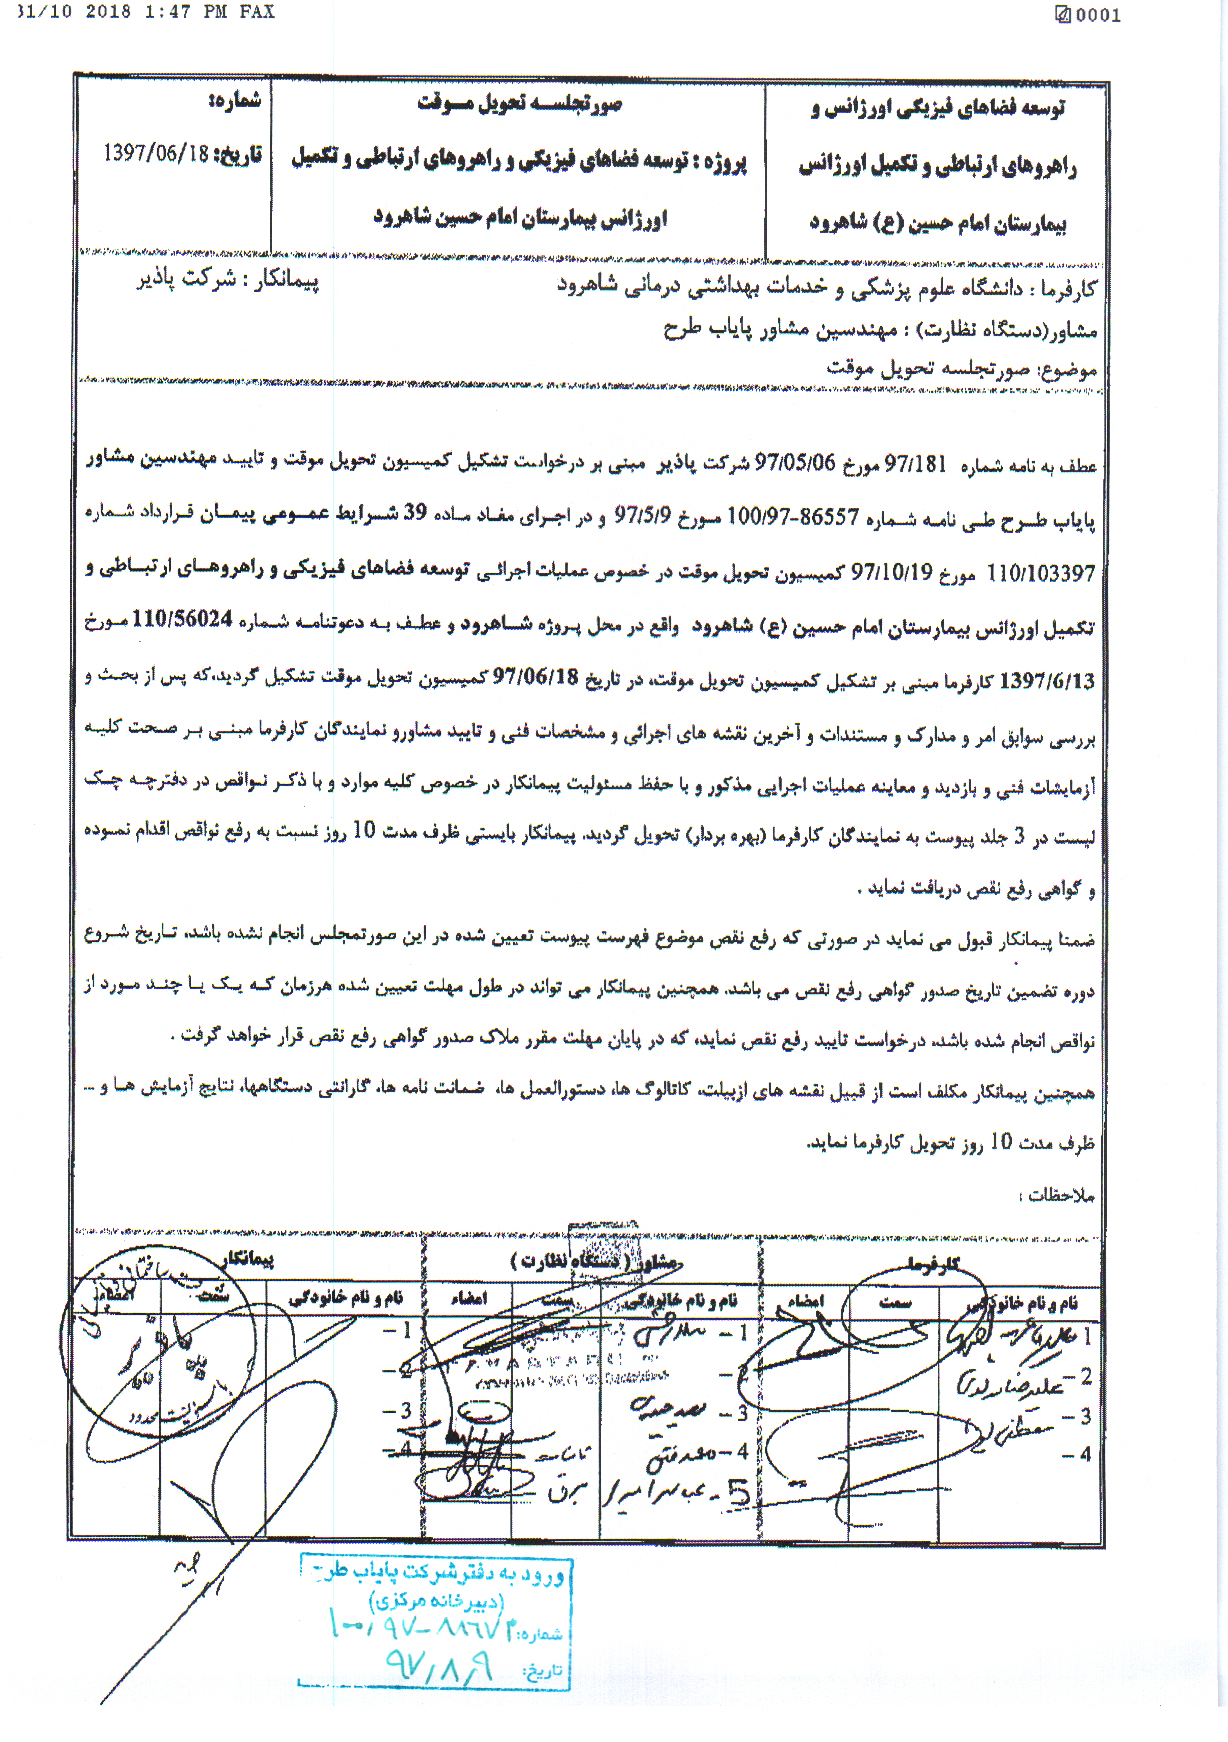 31/10 2018 1:47 PM FAX
0001
توسعه فضاهای فیزیکی اورژانس و
راهروهای ارتباطی و تکمیل اورژانس
بیمارستان امام حسین (ع) شاهرود
صورتجلسه تحویل موقت
پروژه : توسعه فضاهای فیزیکی و راهروهای ارتباطی و تکمیل
اورژانس بیمارستان امام حسین شاهرود
شماره:
تاریخ: 1397/06/18
کارفرما : دانشگاه علوم پزشکی و خدمات بهداشتی درمانی شاهرود
پیمانکار : شرکت پاذیر
مشاور(دستگاه نظارت) : مهندسین مشاور پایاب طرح
موضوع: صورتجلسه تحویل موقت
عطف به نامه شماره 97/181 مورخ 97/05/06 شرکت پاذیر مبنی بر درخواست تشکیل کمیسیون تحویل موقت و تایید مهندسین مشاور
پایاب طرح طی نامه شماره 86557-100/97 مورخ 97/5/9 و در اجرای مفاد ماده 39 شرایط عمومی پیمان قرارداد شماره
110/103397 مورخ 97/10/19 کمیسیون تحویل موقت در خصوص عملیات اجرائی توسعه فضاهای فیزیکی و راهروهای ارتباطی و
تکمیل اورژانس بیمارستان امام حسین (ع) شاهرود واقع در محل پروژه شاهرود و عطف به دعوتنامه شماره 110/56024 مورخ
1397/6/13 کارفرما مبنی بر تشکیل کمیسیون تحویل موقت، در تاریخ 97/06/18 کمیسیون تحویل موقت تشکیل گردید،که پس از بحث و
بررسی سوابق امر و مدارک و مستندات و آخرین نقشه های اجرائی و مشخصات فنی و تایید مشاورو نمایندگان کارفرما مبنی بر صحت کلیه
آزمایشات فنی و بازدید و معاینه عملیات اجرایی مذکور و با حفظ مسئولیت پیمانکار در خصوص کلیه موارد و با ذکر نواقص در دفترچه چک
لیست در 3 جلد پیوست به نمایندگان کارفرما (بهره بردار) تحویل گردید. پیمانکار بایستی ظرف مدت 10 روز نسبت به رفع نواقص اقدام نموده
و گواهی رفع نقص دریافت نماید .
ضمنا پیمانکار قبول می نماید در صورتی که رفع نقص موضوع فهرست پیوست تعیین شده در این صورتمجلس انجام نشده باشد، تاریخ شروع
دوره تضمین تاریخ صدور گواهی رفع نقص می باشد. همچنین پیمانکار می تواند در طول مهلت تعیین شده هرزمان که یک یا چند مورد از
نواقص انجام شده باشد، درخواست تایید رفع نقص نماید، که در پایان مهلت مقرر ملاک صدور گواهی رفع نقص قرار خواهد گرفت .
همچنین پیمانکار مکلف است از قبیل نقشه های ازبیلت، کاتالوگ ها، دستورالعمل ها، ضمانت نامه ها، گارانتی دستگاهها، نتایج آزمایش ها و ...
ظرف مدت 10 روز تحویل کارفرما نماید.
ملاحظات :
کارفرما
مشاور ( دستگاه نظارت )
پیمانکار
نام و نام خانوادگی
سمت
امضاء
نام و نام خانوادگی
سمت
امضاء
نام و نام خانوادگی
سمت
امضاء
1
2 – علیرضا
3 –
4 –
1 –
2 –
3 –
4 –
5 –
برق
1 –
2 –
3 –
4 –
با مسئولیت محدود
ورود به دفتر شرکت پایاب طرح
(دبیرخانه مرکزی)
شماره: ۱۰۰/۹۷-۸۸۶۷۳
تاریخ: ۹۷/۸/۹